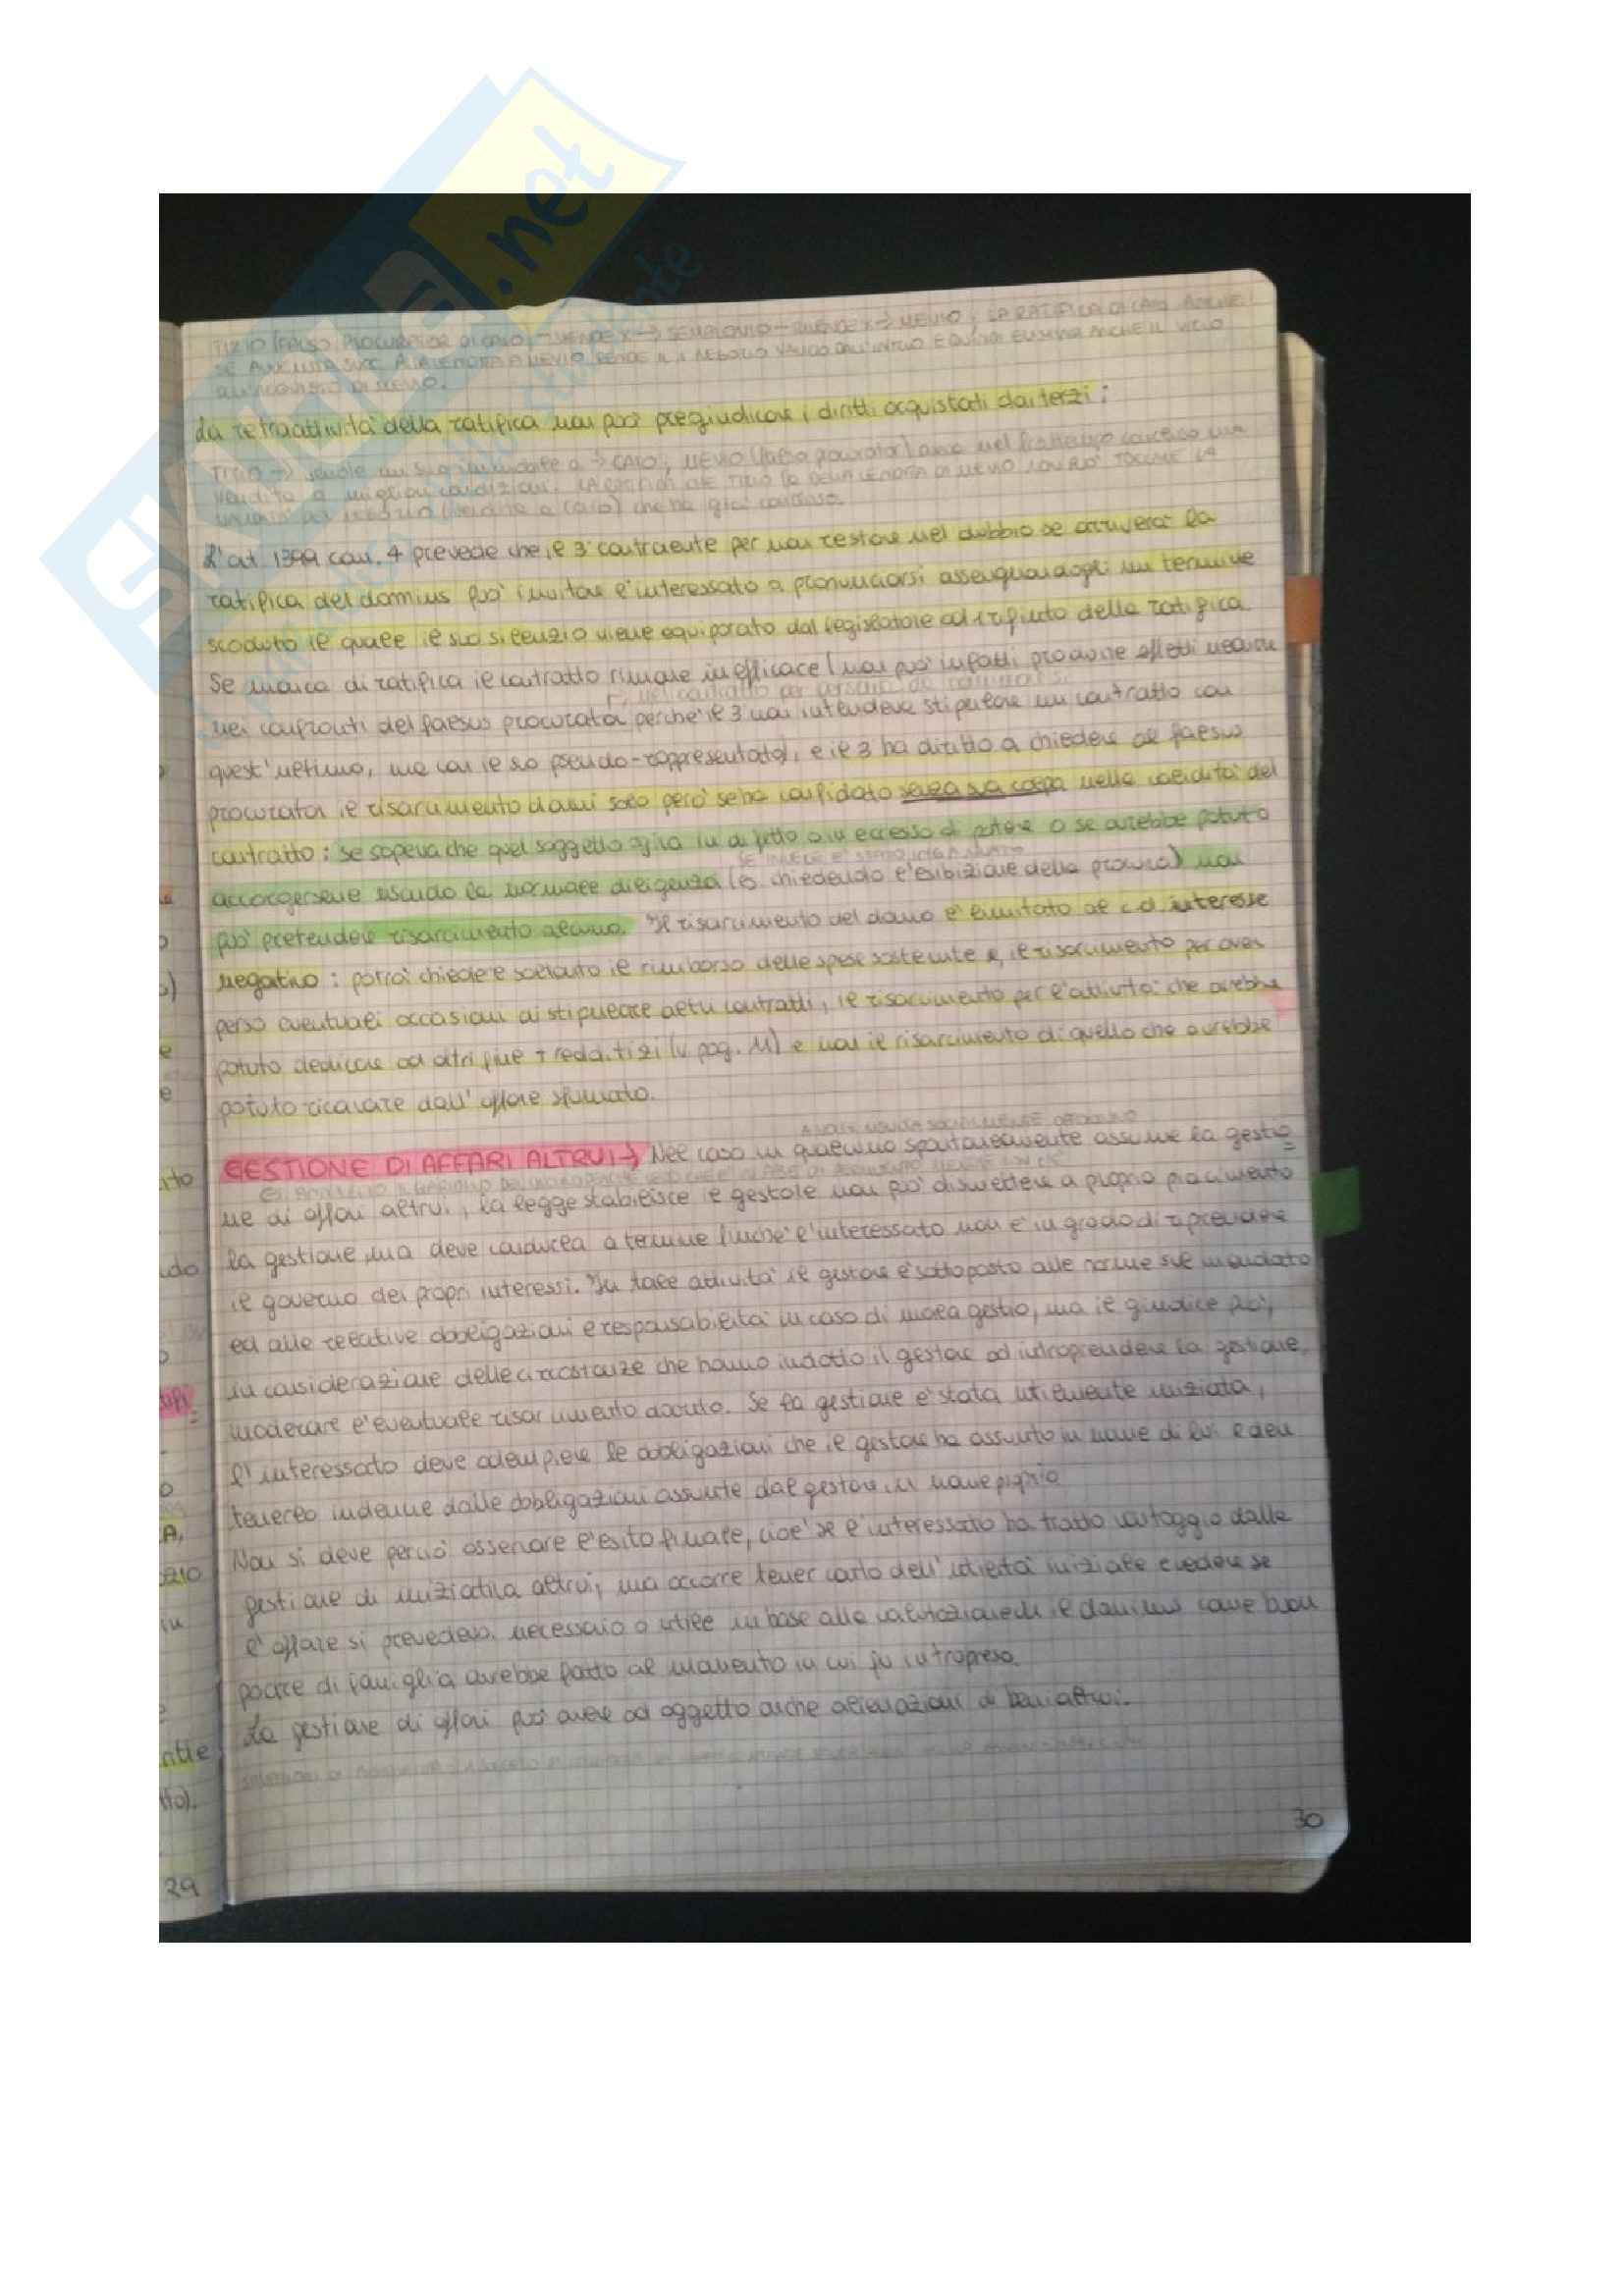 TIZIO (FALSO PROCURATOR DI CAIO) → VENDE X → SEMPRONIO → RIVENDE X → MEVIO; LA RATIFICA DI CAIO ANCHE
SE AVVENUTA SUCC. ALLA VENDITA A MEVIO RENDE IL NEGOZIO VALIDO DALL'INIZIO E QUINDI ELIMINA ANCHE IL VIZIO
ALL'ACQUISTO DI MEVIO.
La retroattività della ratifica non può pregiudicare i diritti acquistati dai terzi:
TIZIO → vende un suo immobile a → CAIO; MEVIO (falso procurator) aveva nel frattempo concluso una
vendita a migliori condizioni. LA RATIFICA CHE TIZIO FA DELLA VENDITA DI MEVIO NON PUÒ TOCCARE LA
(vendita a Caio) che ha già concluso.
L'art. 1399 com. 4 prevede che il 3° contraente per non restare nel dubbio se arriverà la
ratifica del dominus può invitare l'interessato a pronunciarsi assegnandogli un termine
scaduto il quale il suo silenzio viene equiparato dal legislatore ad rifiuto della ratifica.
Se manca di ratifica il contratto rimane inefficace (non può infatti produrre effetti neanche
nei confronti del falsus procurator perché il 3° non intendeva stipulare un contratto con
quest'ultimo, ma con il suo pseudo-rappresentato), e il 3° ha diritto a chiedere al falsus
procurator il risarcimento danni solo però se ha confidato senza sua colpa nella validità del
contratto: se sapeva che quel soggetto agiva in difetto o in eccesso di potere o se avrebbe potuto
SE INVECE È STATO
accorgersene usando la normale diligenza (es. chiedendo l'esibizione della procura) non
può pretendere risarcimento alcuno. Il risarcimento del danno è limitato al c.d. interesse
negativo: potrà chiedere soltanto il rimborso delle spese sostenute e, il risarcimento per aver
perso eventuali occasioni di stipulare altri contratti, il risarcimento per l'attività che avrebbe
potuto dedicare ad altri fini + redditizi (v pag. 11) e non il risarcimento di quello che avrebbe
potuto ricavare dall'affare sfumato.
GESTIONE DI AFFARI ALTRUI → Nel caso in qualcuno spontaneamente assume la gestio
ne di affari altrui, la legge stabilisce il gestore non può dismettere a proprio piacimento
la gestione, ma deve condurla a termine finché l'interessato non è in grado di riprendere
il governo dei propri interessi. In tale attività il gestore è sottoposto alle norme sul mandato
ed alle relative obbligazioni e responsabilità in caso di mala gestio, ma il giudice può,
in considerazione delle circostanze che hanno indotto il gestore ad intraprendere la gestione,
moderare l'eventuale risarcimento dovuto. Se la gestione è stata utilmente iniziata,
l'interessato deve adempiere le obbligazioni che il gestore ha assunto in nome di lui e deve
tenerlo indenne dalle obbligazioni assunte dal gestore in nome proprio
Non si deve perciò osservare l'esito finale, cioè se l'interessato ha tratto vantaggio dalla
gestione di iniziativa altrui, ma occorre tener conto dell'utilità iniziale e vedere se
l'affare si prevedeva necessario o utile in base alla valutazione di il dominus come buon
padre di famiglia avrebbe fatto al momento in cui fu intrapresa.
La gestione di affari può avere ad oggetto anche alienazioni di beni altrui.
30
29